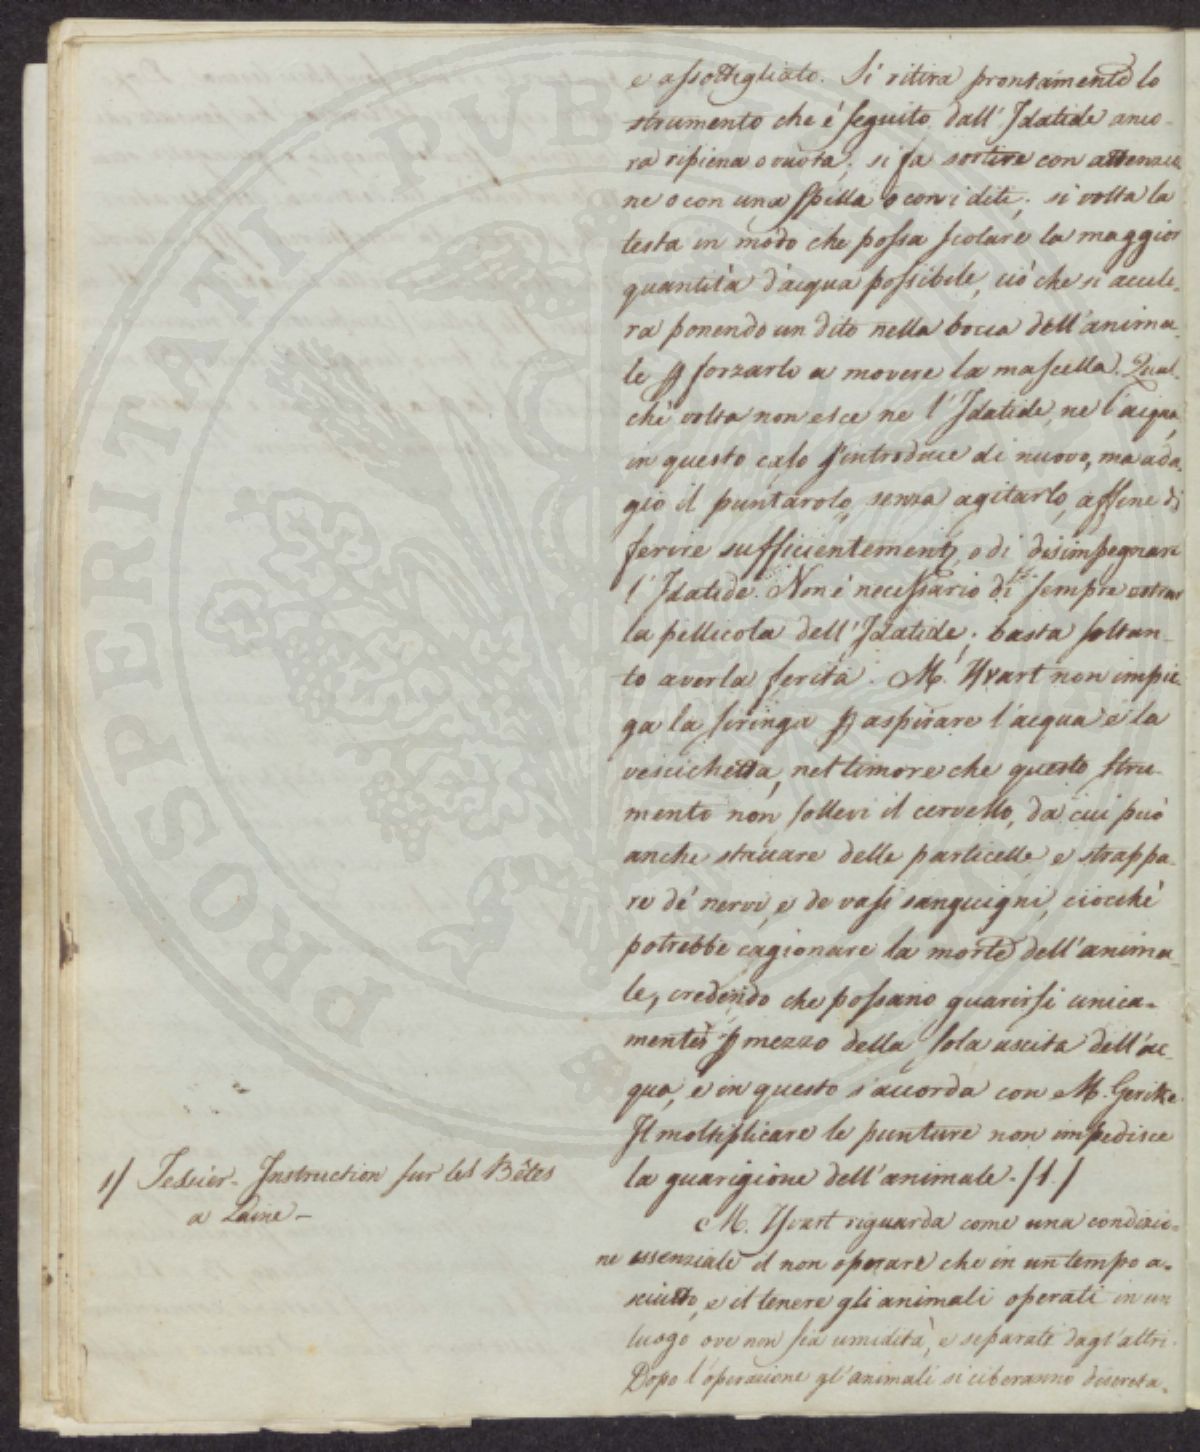 e assottigliato. Si ritira prontamente lo
strumento che è seguito dall'Idatide anco-
ra ripiena o vuota; si fa sortire con attenzio
ne o con una spilla o con i diti; si volta la
testa in modo che possa scolare la maggior
quantità d'acqua possibile, ciò che si accele-
ra ponendo un dito nella bocca dell'anima-
le p forzarlo a movere la mascella. Qual-
chè volta non esce ne l'Idatide, ne l'acqua,
in questo caso s'introduce di nuovo, ma ada-
gio il puntarolo, senza agitarlo, affine di
ferire sufficientement, o di disimpegnare
l'Idatide. Non è necessario di sempre
la pellicola dell'Idatide; basta soltan-
to averla ferita. M. Yvart non impie-
ga la siringa p aspirare l'acqua e la
vescichetta, nel timore che questo stru-
mento non sollevi il cervello, da cui può
anche staccare delle particelle e strappa-
re de' nervi, e de vasi sanguigni, ciocchè
potrebbe cagionare la morte dell'anima-
le, credendo che possano guarirsi unica-
mente p mezzo della sola uscita dell'ac-
qua, e in questo s'accorda con M. Gerike.
Il moltiplicare le punture non impedisce
la guarigione dell'animale. /1/
M. Yvart riguarda come una condizio-
ne essenziale il non operare che in un tempo a-
sciutto, e il tenere gli animali operati in un
luogo ove non sia umidità, e separati dagl'altri.
Dopo l'operazione gl'animali si ciberanno discreta-
1/ Tessier - Instruction sur les Bêtes
a Laine -
PROSPERITATI PUBL